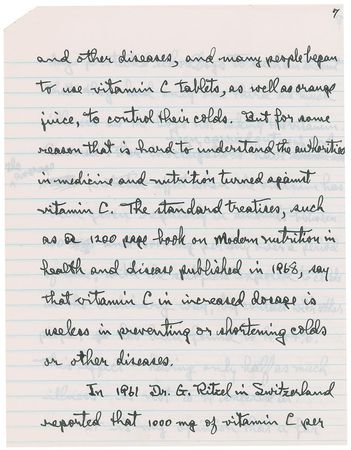 7
and other diseases, and many people began
to use vitamin C tablets, as well as orange
juice, to control their colds. But for some
reason that is hard to understand the authorities
in medicine and nutrition turned against
vitamin C. The standard treatises, such
as a 1200 page book on Modern nutrition in
health and disease published in 1968, say
that vitamin C in increased dosage is
useless in preventing or shortening colds
or other diseases.
In 1961 Dr. G. Ritzel in Switzerland
reported that 1000 mg of vitamin C per